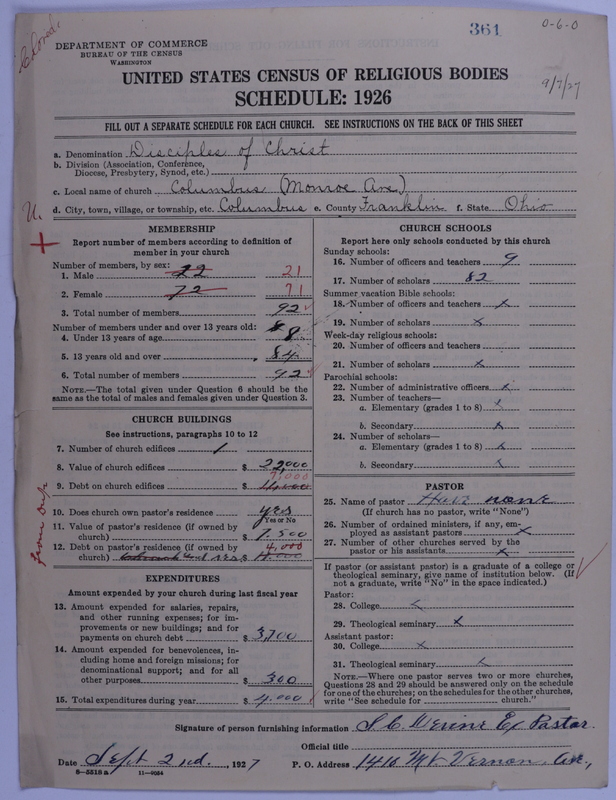 361
0-6-0
9/7/27
DEPARTMENT OF COMMERCE
BUREAU OF THE CENSUS
WASHINGTON
UNITED STATES CENSUS OF RELIGIOUS BODIES
SCHEDULE: 1926
FILL OUT A SEPARATE SCHEDULE FOR EACH CHURCH. SEE INSTRUCTIONS ON THE BACK OF THIS SHEET
a. Denomination Disciples of Christ
b. Division (Association, Conference,
Diocese, Presbytery, Synod, etc.)
c. Local name of church Columbus (Monroe Ave)
d. City, town, village, or township, etc. Columbus e. County Franklin f. State Ohio
MEMBERSHIP
Report number of members according to definition of
member in your church
Number of members, by sex:
1. Male 22 21
2. Female 72 71
3. Total number of members 92
Number of members under and over 13 years old:
4. Under 13 years of age 8
5. 13 years old and over 84
6. Total number of members 92
NOTE.—The total given under Question 6 should be
same as the total of males and females given under Question 3.
CHURCH BUILDINGS
See instructions, paragraphs 10 to 12
7. Number of church edifices 1
8. Value of church edifices $ 22,000
7,000
9. Debt on church edifices $
10. Does church own pastor's residence yes
Yes or No
11. Value of pastor's residence (if owned by
church) $ 7,500
12. Debt on pastor's residence (if owned by 4,000
church) $
EXPENDITURES
Amount expended by your church during last fiscal year
13. Amount expended for salaries, repairs,
and other running expenses; for im-
provements or new buildings; and for
payments on church debt $ 3,700
14. Amount expended for benevolences, in-
cluding home and foreign missions; for
denominational support; and for all
other purposes $ 300
15. Total expenditures during year $ 4,000
CHURCH SCHOOLS
Report here only schools conducted by this church
Sunday schools:
16. Number of officers and teachers 9
17. Number of scholars 82
Summer vacation Bible schools:
18. Number of officers and teachers x
19. Number of scholars x
Week-day religious schools:
20. Number of officers and teachers
21. Number of scholars x
Parochial schools:
22. Number of administrative officers x
23. Number of teachers—
a. Elementary (grades 1 to 8) x
b. Secondary x
24. Number of scholars—
a. Elementary (grades 1 to 8) x
b. Secondary x
PASTOR
25. Name of pastor Have none
(If church has no pastor, write "None")
26. Number of ordained ministers, if any, em-
ployed as assistant pastors x
27. Number of other churches served by the
pastor or his assistants x
If pastor (or assistant pastor) is a graduate of a college or
theological seminary, give name of institution below. (If
not a graduate, write "No" in the space indicated.)
Pastor:
28. College x
29. Theological seminary x
Assistant pastor:
30. College x
31. Theological seminary x
NOTE.—Where one pastor serves two or more churches,
Questions 28 and 29 should be answered only on the schedule
for one of the churches; on the schedules for the other churches,
write "See schedule for church."
Signature of person furnishing information Ex Pastor
Official title
Date Sept 2nd, 1927 P. O. Address 1416 Mt Vernon Ave,
8—5518a 11—9054